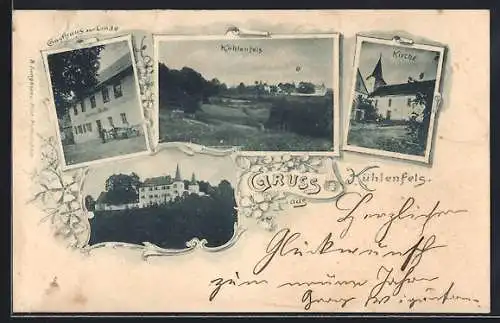 Gasthaus zur Linde
Kühlenfels
Kirche
GRUSS
aus
Kühlenfels.
Herzlichen
Glückwunsch
zum neuen Jahre
Georg